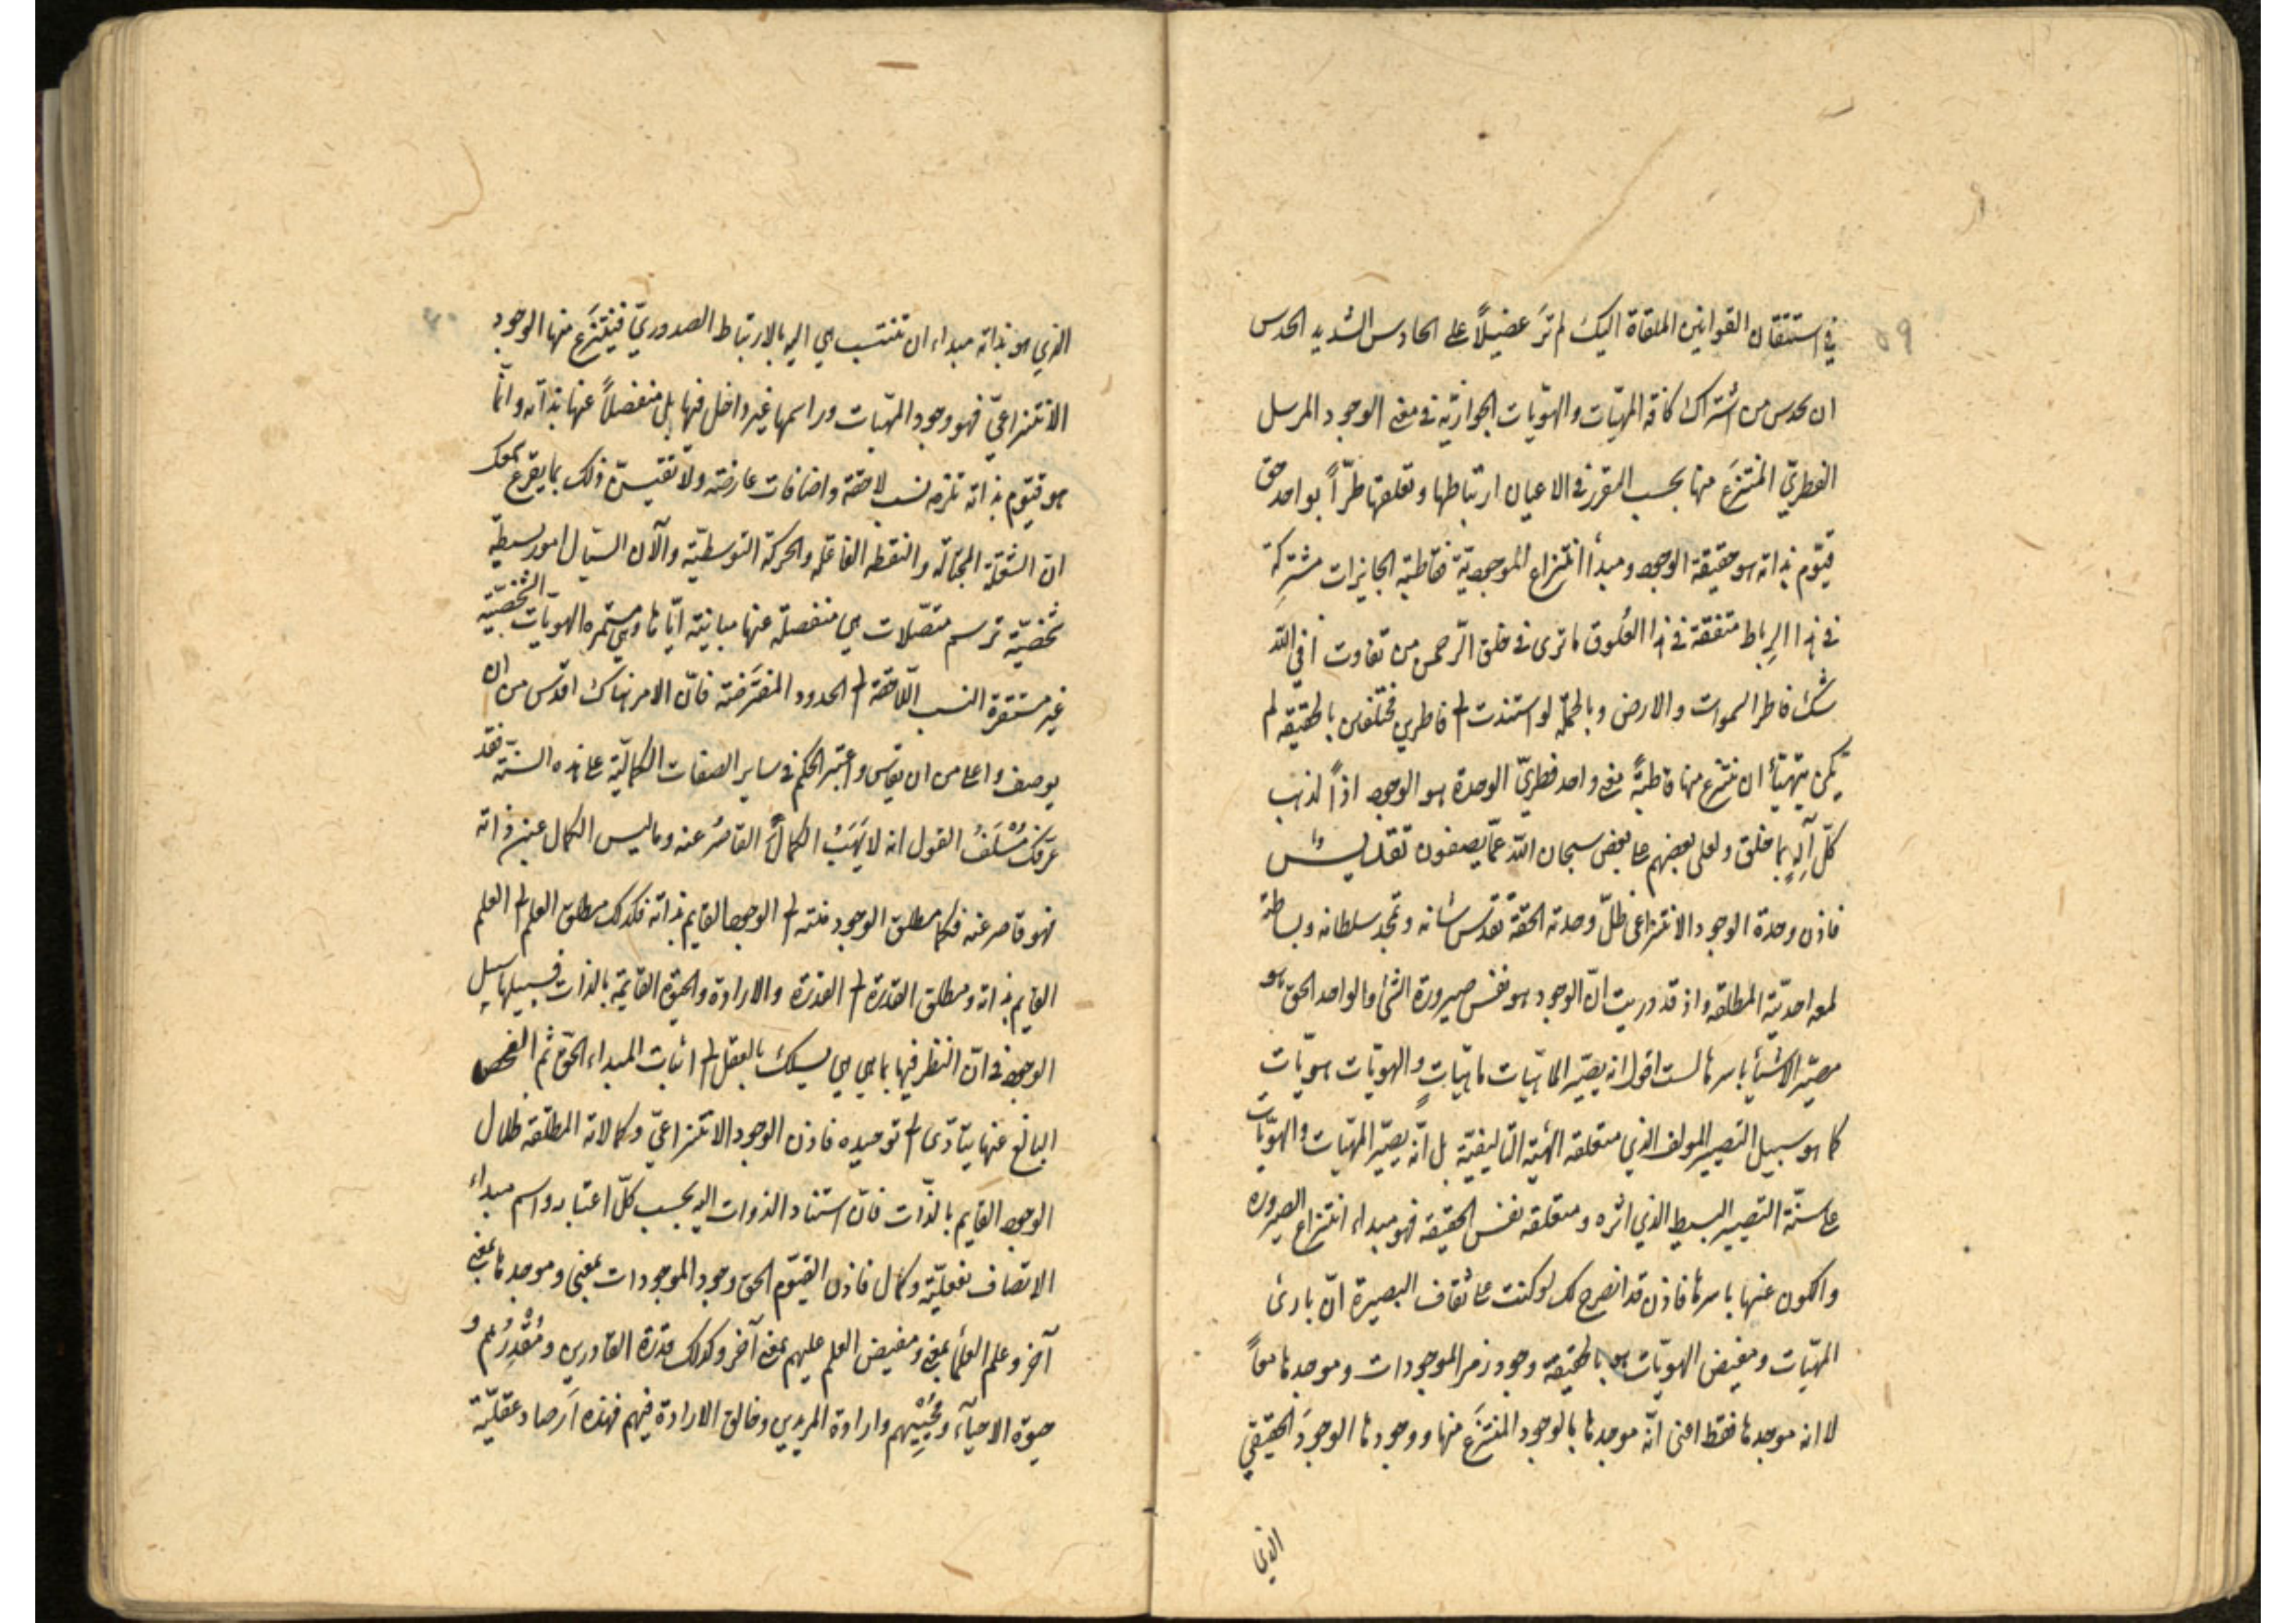 في استتقان القوانين الملقاة اليك لم تر عضيلاً على الحادس الشديد الحدس
ان يحدس من اشتراك كافة المهيّات والهويّات الجوازيّة في معنى الوجود المرسل
الفطريّ المنتزَع منها بحسب التقرر في الاعيان ارتباطها وتعلقها طرّاً بواحد حق
قيّوم بذاته هو حقيقة الوجود ومبدأ انتزاع الموجودية فقاطبة الجايزات مشتركة
في هذا الرِباط متفقة في هذا العُلوق ما ترى في خلق الرّحمن من تفاوت أفي الله
شك فاطر السموات والارض وبالجملة لو استندت الى فاطرين مختلفين بالحقيقة لم
يكن يتهيّأ ان ينتزع منها قاطبةً معنى واحد فطريّ الوحدة هو الوجود اذاً لذهب
كلّ آلهٍ بما خلق ولعلى بعضهم على بعض سبحان الله عمّا يصفون تقديسٌ
فاذن وحدة الوجود الانتزاعى ظلّ وحدته الحقّة تقدّس شانه وتمجّد سلطانه وبساطته
لمعه احديّته المطلقة واذ قد دريت انّ الوجود هو نفس صيرورة الشئ والواحد الحق هو
مصيّر الاشيآء باسرها لست اقول انه يصيّر الماهيّات ماهيّاتٍ والهويّات هويّات
كما هو سبيل التصيير المولف الذي متعلقه الهيئة التاليفيّة بل انّه يصيّر المهيّات والهويّات
على سنّة التصيير البسيط الذي اثره ومتعلقه نفس الحقيقة فهو مبداء انتزاع الصيرورة
والكون عنها باسرها فاذن قد انصرح لك لو كنت على ثقاف البصيرة انّ بارئ
المهيّات ومفيض الهويّات هو بالحقيقة وجود زمر الموجودات وموجدها معاً
لا انه موجدها فقط اعنى انّه موجدها بالوجود المنتزَع منها ووجودها الوجودَ الحقيقيّ
الذى
الذي هو بذاته مبداء ان تنتسب هي اليه بالارتباط الصدوريّ فيُنتزَع منها الوجود
الانتزاعيّ فهو وجود المهيّات وراسمها غير داخل فيها بل منفصلاً عنها بذاته وانّما
هو قيّوم بذاته تلزمه نسب لاحقة واضافات عارضة ولا تقيسنّ ذلك بما يقرع سمعك
انّ الشعلة الجوّالة والنقطة الفاعلة والحركة التوسطيّة والآن السيّال امور بسيطة
شخصيّة ترسم متصّلات هي منفصلة عنها مباينة ايّاها وهي مستمرة الهويّات الشخصيّة
غير مستقرة النسب اللّاحقة الى الحدود المفترضة فانّ الامر هناك اقدس من ان
يوصف واعلى من ان يقاس واعتبر الحكم في ساير الصفات الكماليّة على هذه السنّة فقد
عرّفك مُسْلَفُ القول انه لا يَهَبُ الكمالَ القاصرُ عنه وما ليس الكمال عين ذاته
فهو قاصر عنه فكما مطلق الوجود فئته الى الوجود القايم بذاته فكذلك مطلق العلم الى العلم
القايم بذاته ومطلق القدرة الى القدرة والارادة والحيوة القايمة بالذات فسبيلها سبيل
الوجود في انّ النظر فيها بما هي هي يسلك بالعقل الى اثبات المبداء الحق ثمّ الفحص
البالغ عنها يتادّى الى توحيده فاذن الوجود الانتزاعيّ وكمالاته المطلقة ظلال
الوجود القايم بالذّات فانّ استناد الذوات اليه بحسب كلّ اعتبار واسم مبداء
الاتصاف بفعليّة وكمال فاذن القيّوم الحق وجود الموجودات بمعنى وموجدها بمعنى
آخر وعلم العلمآء بمعنى ومفيض العلم عليهم بمعنى آخر وكذلك قدرة القادرين ومُقْدِرُهم و
حيوة الاحيآء ومُحْيِيْهم وارادة المريدين وخالق الارادة فيهم فهذه اَرصاد عقليّة